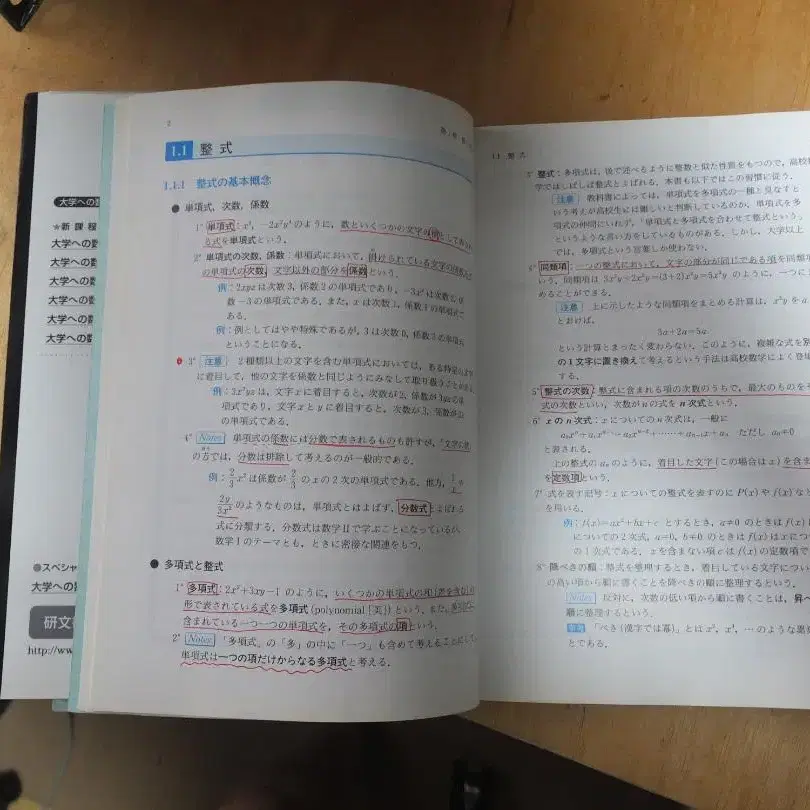 大学への数
★新課程
大学への数
大学への数
大学への数
大学への数
大学への数
大学への数
●スペシャ
大学への数
研文
http://www
2
1.1 整式
1.1.1 整式の基本概念
● 単項式，次数，係数
1° 単項式：x³，−2x²y⁴ のように，数といくつかの文字の積として
る式を単項式という．
2° 単項式の次数，係数：単項式において，掛けられている文字の
の単項式の次数，文字以外の部分を係数という．
例：2xyz は次数 3，係数 2 の単項式であり，−3x² は次数 2，係
数 −3 の単項式である．また，x は次数 1，係数 1 の単項式で
ある．
例：例としてはやや特殊であるが，3 は次数 0，係数 3 の単項式
ということになる．
3° 注意 2 種類以上の文字を含む単項式においては，ある特定の
に着目して，他の文字を係数と同じようにみなして取り扱うことが
例：3x²yz は，文字 x に着目すると，次数が 2，係数が 3yz の単
項式であり，文字 x と y に着目すると，次数が 3，係数が 3z
の単項式である．
4° Notes 単項式の係数には分数で表されるものも許すが，
では，分数は排除して考えるのが一般的である．
例：2/3 x² は係数が 2/3 の x の 2 次の単項式である．他方，1/x，
2y/3x² のようなものは，単項式とはよばず，分数式とよばれる
式に分類する．分数式は数学Ⅱで学ぶことになっているが，
数学Ⅰのテーマとも，ときに密接な関連をもつ．
● 多項式と整式
1° 多項式：2x²+3xy−1 のように，いくつかの単項式の和(差を含む)の
形で表されている式を多項式 (polynomial [英]) という．また，
含まれている一つ一つの単項式を，その多項式の項という．
2° Notes 「多項式」の「多」の中に「一つ」も含めて考えることにして，
単項式は一つの項だけからなる多項式と考える．
1.1 整式
3° 整式：多項式は，後で述べるように整数と似た性質をもつので，高校
学ではしばしば整式とよばれる．本書も以下ではこの習慣に従う．
注意 教科書によっては，単項式を多項式の一種と見なすと
いう考えが高校生には難しいと判断しているのか，単項式を多
項式の仲間にいれず，「単項式と多項式を合わせて整式という」
というような言い方をしているものがある．しかし，大学以上
では，多項式という言葉しか使わない．
4° 同類項：一つの整式において，文字の部分が同じである項を同類項
いう．同類項は 3x²y+2x²y=(3+2)x²y=5x²y のように，一つに
めることができる．
注意 上に示したような同類項をまとめる計算は，x²y を a
とおけば，
3a+2a=5a
という計算とまったく変わらない．このように，複雑な式を別
の 1 文字に置き換えて考えるという手法は高校数学によく登場
する．
5° 整式の次数：整式に含まれる項の次数のうちで，最大のものをそ
式の次数といい，次数が n の式を n 次式という．
6° x の n 次式：x についての n 次式は，一般に
ただし aₙ≠0
と表される．
上の整式の a₀ のように，着目した文字 (この場合は x) を含ま
を定数項という．
7° 式を表す記号：x についての整式を表すのに P(x) や f(x) など
を用いる．
例：f(x)=ax²+bx+c とするとき，a≠0 のときは f(x)
についての 2 次式，a=0，b≠0 のときは f(x) は x につ
の 1 次式である．x を含まない項 c は f(x) の定数項で
8° 降べきの順：整式を整理するとき，着目している文字につい
の高い項から順に書くことを降べきの順に整理するという．
Notes 反対に，次数の低い項から順に書くことは，昇べ
順に整理するという．
参考 「べき (漢字では冪)」とは x²，x³，… のような
とである．